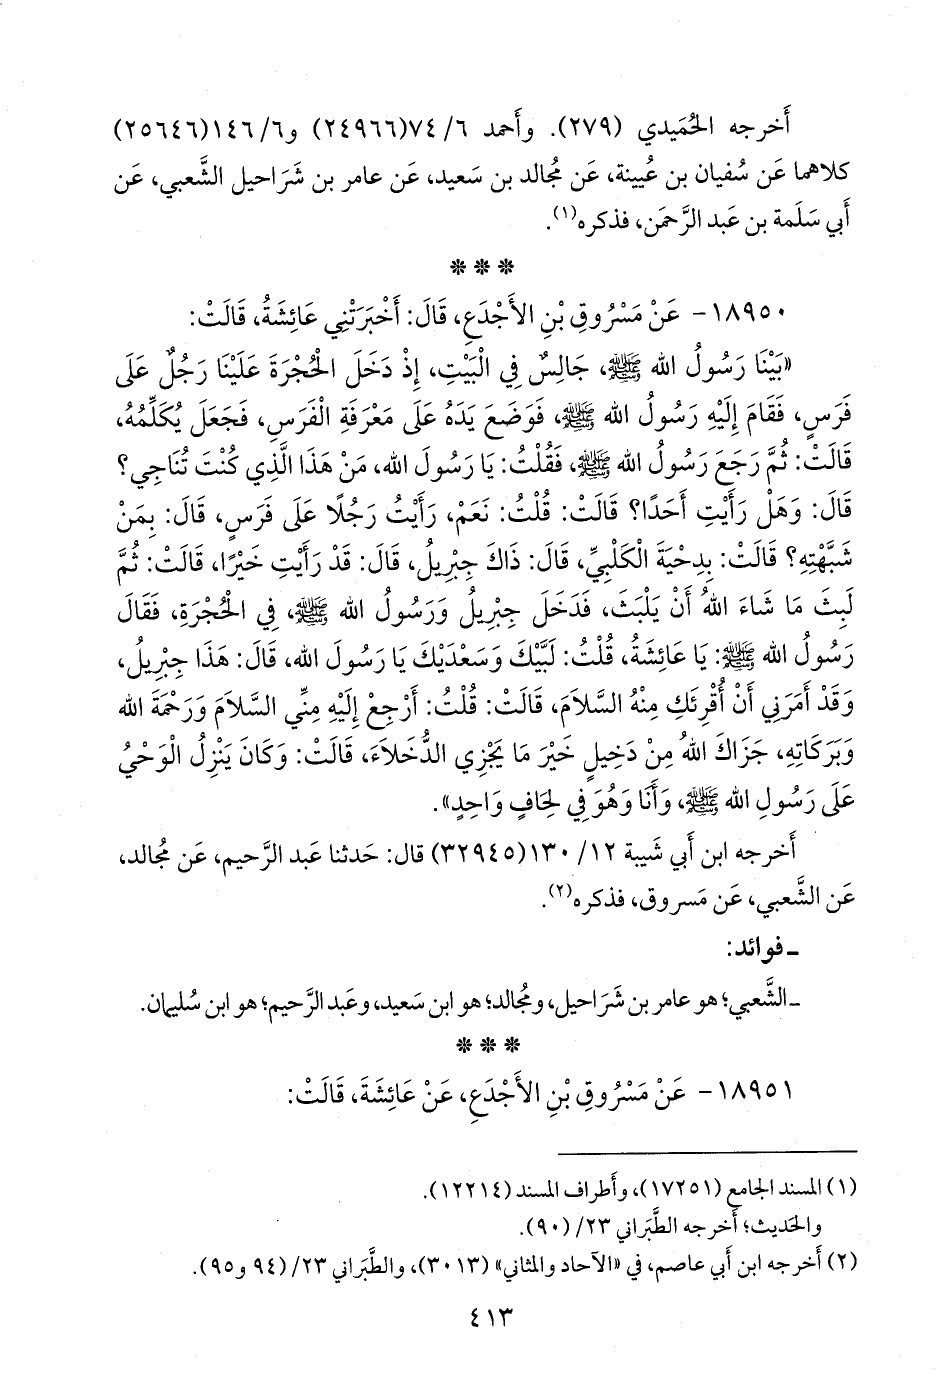 أَخرجه الحُمَيدي (٢٧٩). وأَحمد ٦/ ٧٤(٢٤٩٦٦) و٦/ ١٤٦(٢٥٦٤٦)
كلاهما عَن سُفيان بن عُيينة، عَن مُجالد بن سَعيد، عَن عامر بن شَراحيل الشَّعبي، عَن
أَبي سَلَمة بن عَبد الرَّحمَن، فذكره(١).
* * *
١٨٩٥٠- عَنْ مَسْرُوقِ بْنِ الأَجْدَعِ، قَالَ: أَخْبَرَتْنِي عَائِشَةُ، قَالَتْ:
«بَيْنَا رَسُولُ الله ﷺ، جَالِسٌ فِي الْبَيْتِ، إِذْ دَخَلَ الْحُجْرَةَ عَلَيْنَا رَجُلٌ عَلَى
فَرَسٍ، فَقَامَ إِلَيْهِ رَسُولُ الله ﷺ، فَوَضَعَ يَدَهُ عَلَى مَعْرَفَةِ الْفَرَسِ، فَجَعَلَ يُكَلِّمُهُ،
قَالَتْ: ثُمَّ رَجَعَ رَسُولُ الله ﷺ، فَقُلْتُ: يَا رَسُولَ الله، مَنْ هَذَا الَّذِي كُنْتَ تُنَاجِي؟
قَالَ: وَهَلْ رَأَيْتِ أَحَدًا؟ قَالَتْ: قُلْتُ: نَعَمْ، رَأَيْتُ رَجُلًا عَلَى فَرَسٍ، قَالَ: بِمَنْ
شَبَّهْتِهِ؟ قَالَتْ: بِدِحْيَةَ الْكَلْبِيِّ، قَالَ: ذَاكَ جِبْرِيلُ، قَالَ: قَدْ رَأَيْتِ خَيْرًا، قَالَتْ: ثُمَّ
لَبِثَ مَا شَاءَ اللهُ أَنْ يَلْبَثَ، فَدَخَلَ جِبْرِيلُ وَرَسُولُ الله ﷺ، فِي الْحُجْرَةِ، فَقَالَ
رَسُولُ الله ﷺ: يَا عَائِشَةُ، قُلْتُ: لَبَّيْكَ وَسَعْدَيْكَ يَا رَسُولَ الله، قَالَ: هَذَا جِبْرِيلُ،
وَقَدْ أَمَرَنِي أَنْ أُقْرِئَكِ مِنْهُ السَّلاَمَ، قَالَتْ: قُلْتُ: أَرْجِعْ إِلَيْهِ مِنِّي السَّلاَمَ وَرَحْمَةَ الله
وَبَرَكَاتِهِ، جَزَاكَ اللهُ مِنْ دَخِيلٍ خَيْرَ مَا يَجْزِي الدُّخَلاَءَ، قَالَتْ: وَكَانَ يَنْزِلُ الْوَحْيُ
عَلَى رَسُولِ الله ﷺ، وَأَنَا وَهُوَ فِي لِحَافٍ وَاحِدٍ».
أَخرجه ابن أَبي شَيبة ١٢/ ١٣٠(٣٢٩٤٥) قال: حَدثنا عَبد الرَّحيم، عَن مُجالد،
عَن الشَّعبي، عَن مَسروق، فذكره(٢).
ـ فوائد:
ـ الشَّعبي؛ هو عامر بن شَراحيل، ومُجالد؛ هو ابن سَعيد، وعَبد الرَّحيم؛ هو ابن سُليمان.
* * *
١٨٩٥١- عَنْ مَسْرُوقِ بْنِ الأَجْدَعِ، عَنْ عَائِشَةَ، قَالَتْ:
(١) المسند الجامع (١٧٢٥١)، وأَطراف المسند (١٢٢١٤).
والحَديث؛ أَخرجه الطَّبَراني ٢٣/ (٩٠).
(٢) أَخرجه ابن أَبي عاصم، في «الآحاد والمثاني» (٣٠١٣)، والطَّبَراني ٢٣/ (٩٤ و٩٥).
٤١٣